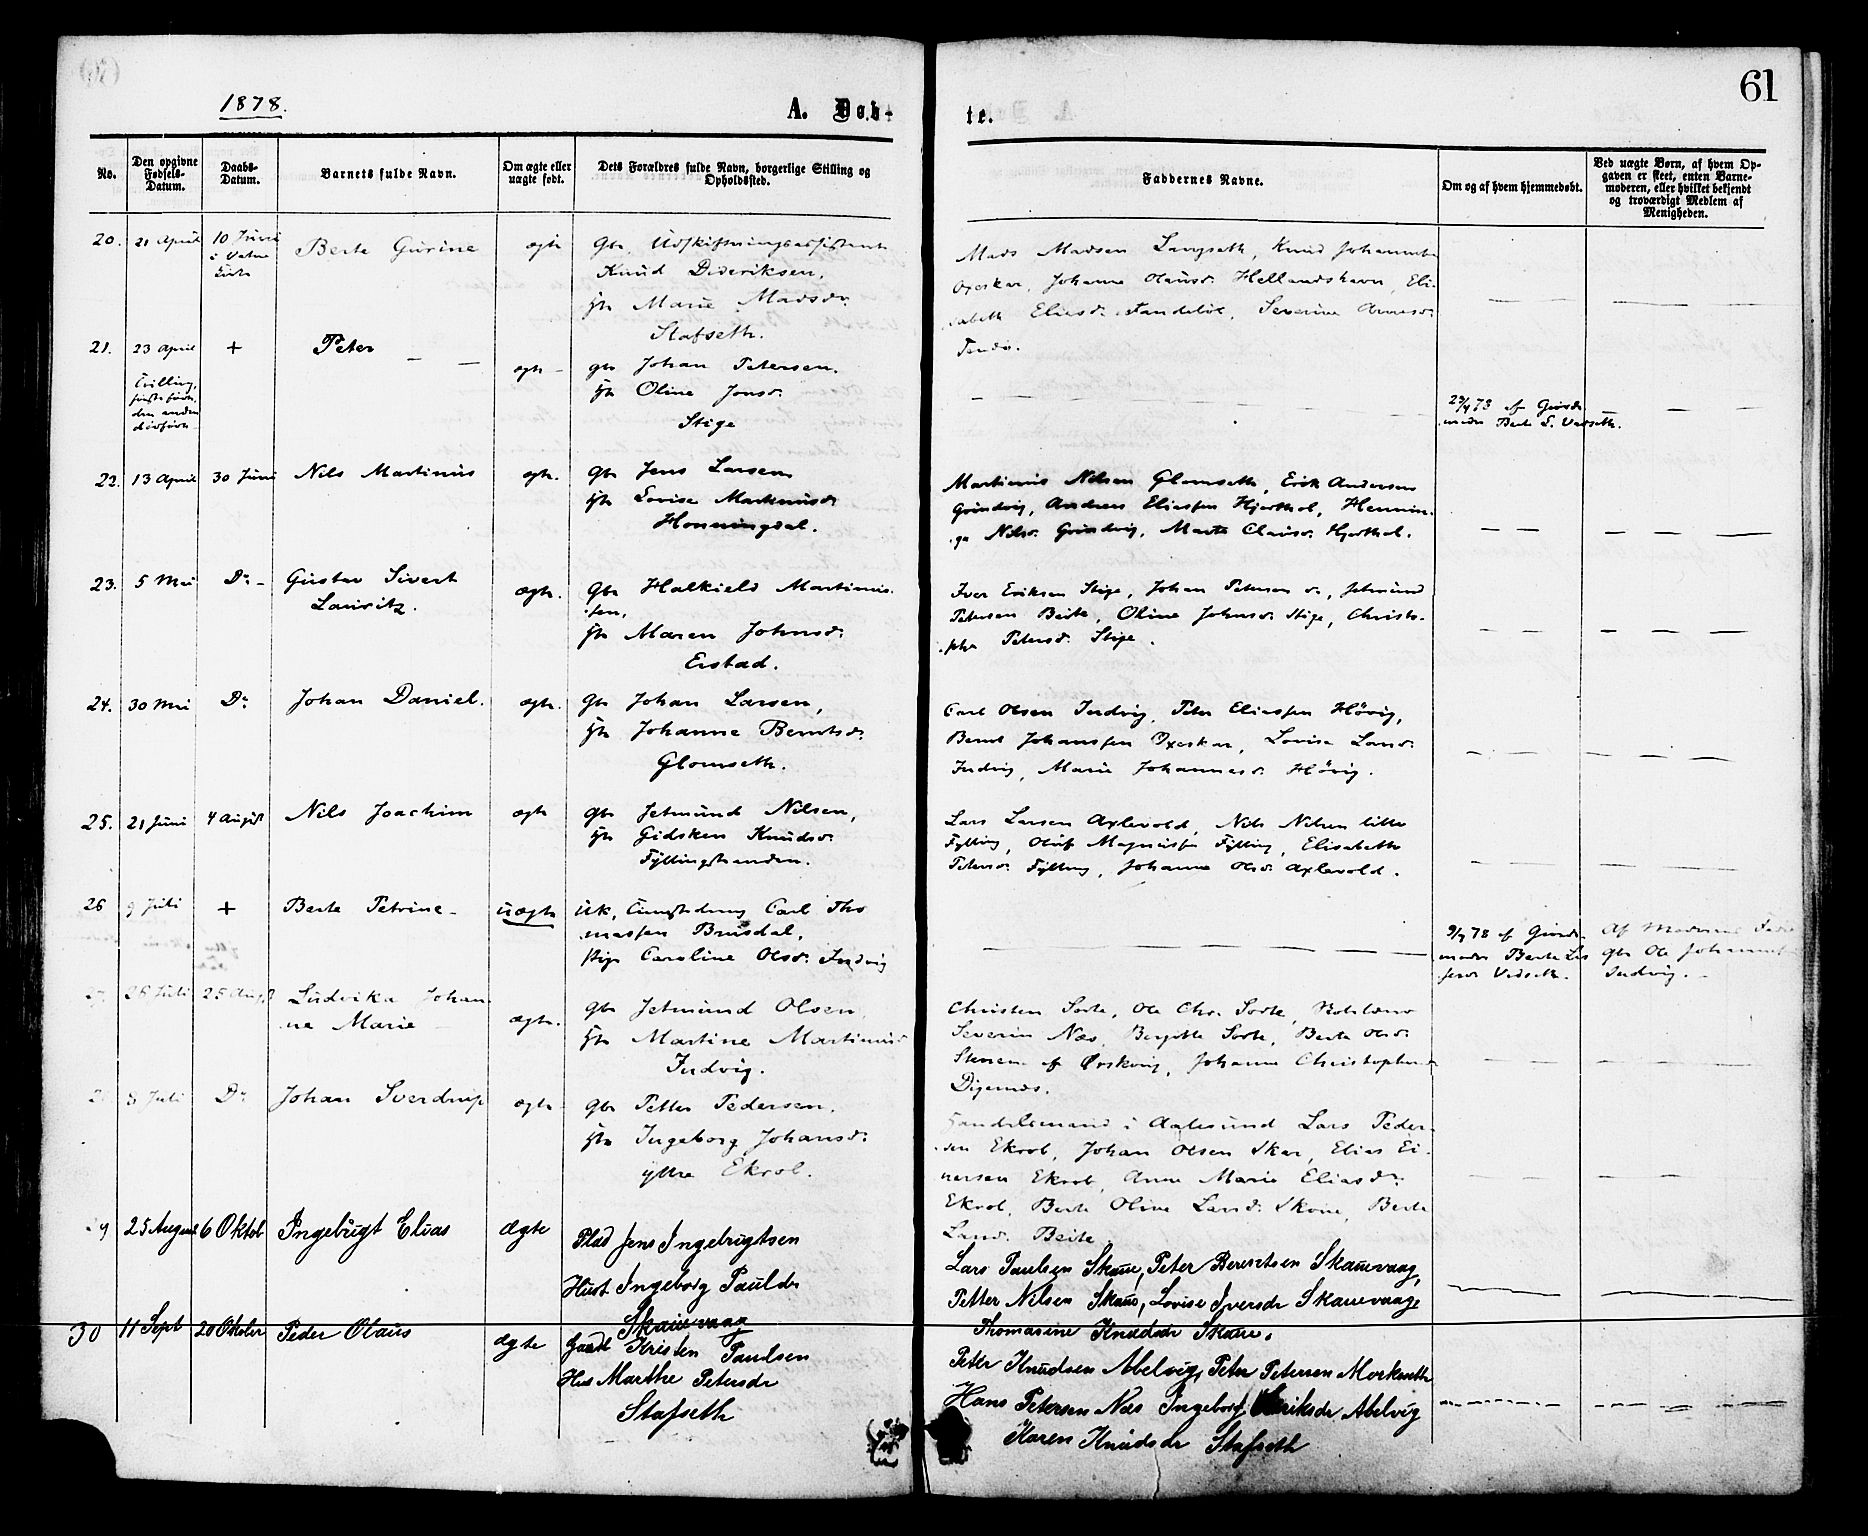 61
1878.
A. Døb-
te.
No.
Den opgivne Fødsels-Datum.
Daabs-Datum.
Barnets fulde Navn.
Om ægte eller uægte født.
Dets Forældres fulde Navn, borgerlige Stilling og Opholdssted.
Faddernes Navne.
Om og af hvem hjemmedøbt.
Ved uægte Børn, af hvem Opgaven er skeet, enten Barnemoderen, eller hvilket bekjendt og troværdigt Medlem af Menigheden.
20. 21 April 10 Juni Berte Gurine ægte Gbr. Udskiftningsassistent
i Vatne Kirke
Knud Dideriksen,
Marie Madsdr.
Stafseth.
Mads Madsen Langseth, Knud Johannes
Oxeskar, Johanne Olausdr. Hellandshavn, Eli-
sabeth Eliasdr. , Severine
21. 23 April + Peter ægte Gbr Johan Petersen.
Tvilling, første født, den anden dødfødt
Oline Jonsdr.
Stige
af Gjorde-
moder Berte L. Vadseth.
22. 13 April 30 Juni Nils Martinus ægte. Gbr Jens Larsen
Lovise Martinusdr
Honningdal.
Martinus Nilsen Glomseth, Erik Andersen
Grindvig, Andreas Eliassen Hjorthol, Hennin-
ge Nilsdr. Grindvig, Marte Clausdr. Hjorthol.
23. 5 Mai Do - Gustav Sivert
Lauritz.
ægte. Gbr Halkield Martinus-
sen,
Maren Johnsdr.
Erstad.
Iver Eriksen Stige, Johan Petersen do, Jetmund
Petersen Beite, Oline Johnsdr. Stige, Christo-
Petersdr. Stige.
24. 30 Mai Do Johan Daniel. ægte. Gbr Johan Larsen,
Johanne Berntsdr.
Glomseth.
Carl Olsen Indvig, Peter Eliassen Høvig,
Bernt Johanssen Oxeskar, Lovise Larsdr.
Indvig, Marie Johannesdr. Høvig.
25. 21 Juni 4 August Nils Joachim ægte Gbr Jetmund Nilsen,
Gidsken Knudsdr.
Fyllingstranden.
Lars Larsen Axlevold, Nils Nilsen lille
Fylling, Oluf Magnussen Fylling, Elisabeth
Petersdr. Fylling, Johanne Olsdr. Axlevold.
26 9 Juli + Berte Petrine uægte Uk. Carl Tho
massen Brusdal,
Pige Caroline Olsdr. Indvig
9/7 78 af Gjorde-
moder Berte
Vadseth.
Af Moderens Fader
Gbr Ole Johannes
Indvig.
27. 26 Juli 25 August Ludvika Johan-
ne Marie
ægte. Gbr Jetmund Olsen,
Martine Martinusdr
Indvig.
Christen Sorte, Ole Chr. Sorte,
Severin Næs, Bergitte Sorte, Berte Olsdr.
af Ørskoug, Johanne Christophersdr
Digernæs.
8 Juli Do Johan Sverdrup ægte Gbr Petter Pedersen.
Ingeborg Johansdr.
ytre Ekrol.
Handelsmand i Aalesund Lars Peder-
sen Ekrol, Johan Olsen Skar, Elias Ei-
nersen Ekrol, Anne Marie Eliasdr.
Ekrol, Berte Oline Larsdr. Skoue, Berte
Larsdr. Beite.
29 25 August 6 Oktob Ingebrigt Elias ægte Plad Jens Ingebrigtsen
Hust Ingeborg Paulsdr
Skauevaag
Lars Paulsen Skaue, Peter Berentsen Skauevaag,
Petter Nilsen Skaue, Lovise Iversdr Skauevaage
Thomasine Knudsdr Skaue.
30 11 Sept 20 Oktober Peder Olaus ægte Gaard Kristen Paulsen
Hus Marthe Petersdr
Stafseth
Peter Knudsen Abelvig, Peter Petersen Morkseth
Hans Petersen Næs Ingeborg Eriksdr Abelvig
Karen Knudsdr Stafseth